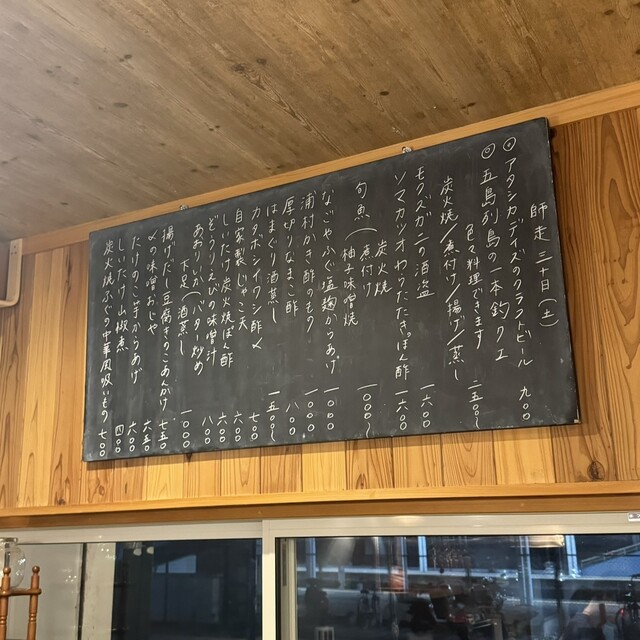 師走三十日(土)
アタシカデイズのクラフトビール 九〇〇
五島列島の一本釣クエ
色々料理できます
炭火焼/煮付け/揚げ/蒸し 二五〇〇〜
モクズガニの酒盗 一六〇〇
ソマカツオわらたたきぽん酢 一六〇〇
炭火焼
旬魚(煮付け 一〇〇〇〜
柚子味噌焼
なごやふぐ塩麹からあげ 一〇〇〇
浦村かき酢のもの 一〇〇〇
厚切りなまこ酢 八〇〇
はまぐり酒蒸し 一五〇〇〜
カタボシイワシ酢〆 七〇〇
自家製じゃこ天 六〇〇
しいたけ炭火焼ぽん酢 六〇〇
ぞうりえびの味噌汁 八〇〇
あおりいか(バター炒め
下足 酒蒸し 一〇〇〇
揚げだし豆腐きのこあんかけ 七五〇
味噌おじや 六五〇
たけのこ手からあげ 六〇〇
しいたけ山椒煮 四〇〇
炭火焼ふぐの中華風吸いもの 七〇〇